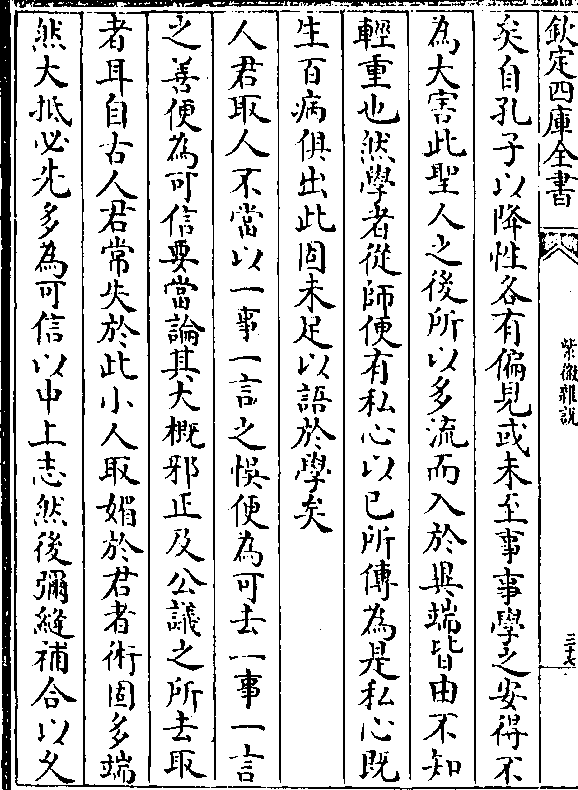 欽定四庫全書
紫微雜說
三十七
矣自孔子以降性各有偏見或未至事事學之安得不
為大害此聖人之後所以多流而入於異端皆由不知
輕重也然學者從師便有私心以已所傳為是私心既
生百病俱出此固未足以語於學矣
人君取人不當以一事一言之悞便為可去一事一言
之善便為可信要當論其大概邪正及公議之所去取
者耳自古人君常失於此小人取媚於君者術固多端
然大抵必先多為可信以中上志然後彌縫補合以久